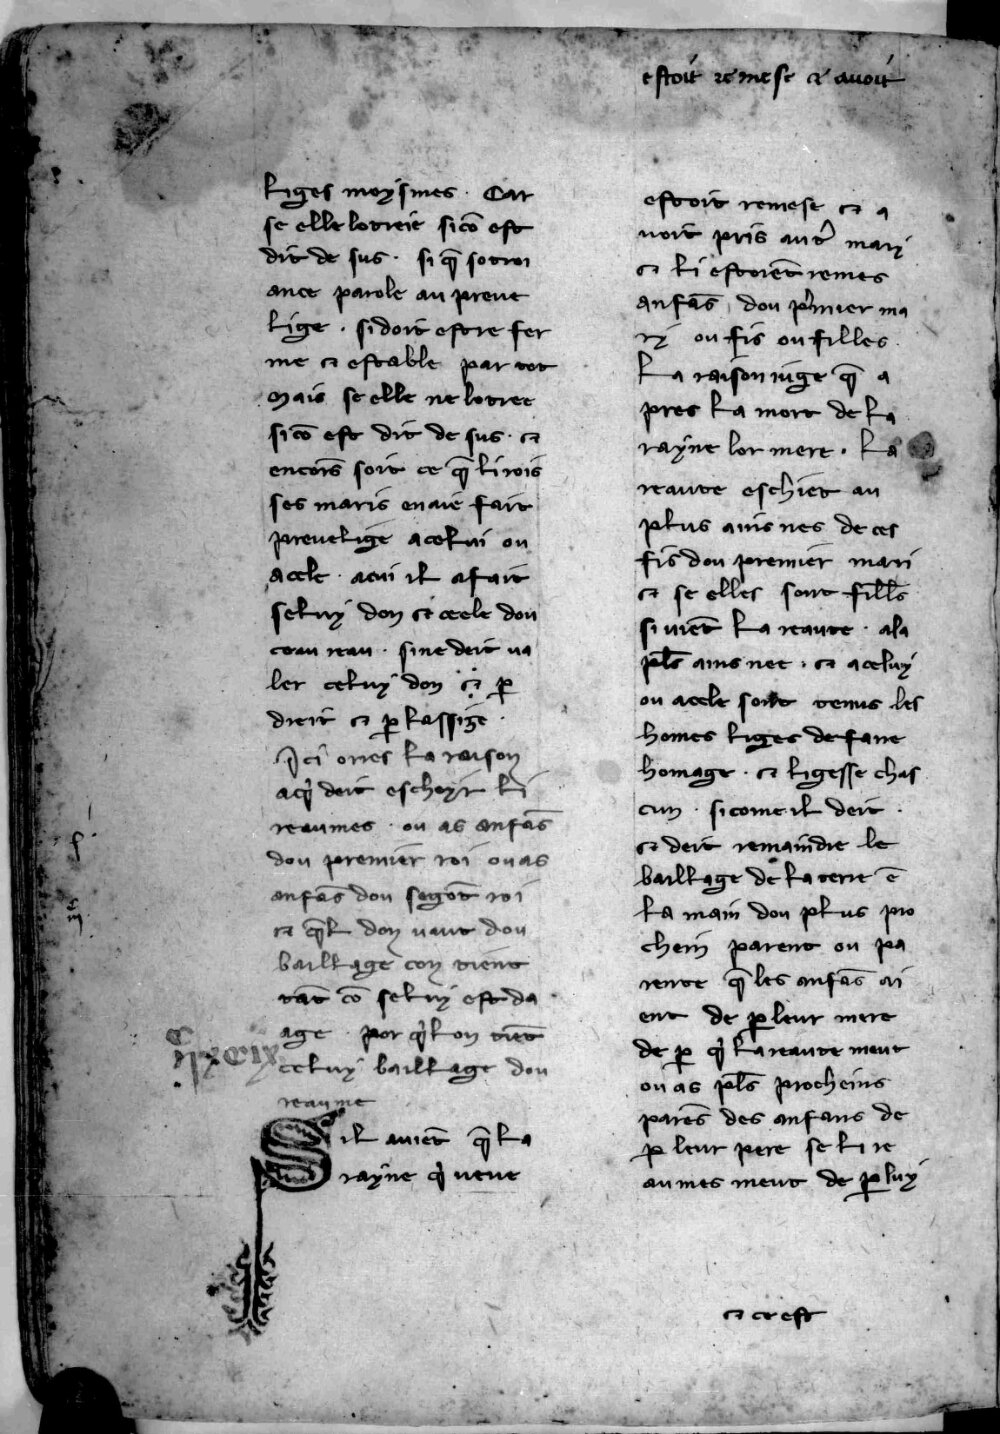 estoit remese ⁊ avoit
liges moysmes · Car
se elle lotreie sicō est
dit de sus · si q̄ sotroi
ance parole au preve
lige · si doit estre fer
me ⁊ estable par tot
Mais se elle ne lotree
sicō est dit de sus · ⁊
encors soit ce q̄ li rois
ses maris en aie fait
previlige a celui ou
a cele · a cui il a fait
seluy don ⁊ cele dou
reau · si ne deit va
ler celuy don ⁊ p̱
dreit ⁊ p̱ lassize ·
ci ores la raison
a q̇ deit escheyr li
reaumes · ou as anfās
dou premier roi ou as
anfās dou segōt roi
⁊ q̄l don vaut dou
baillage con tient
tāt cō seluy est da
age · por q̇ lon tiēt
celuy baillage dou
reaume
Sil aviēt q̄ la
rayne q̇ veve
estoit remese ⁊ a
voit pris aut̾ mari
⁊ li estoiēt remes
anfās dou p̾mier ma
ri ou fis ou filles ·
La raison iuge q̄ a
pres la mort de la
rayne lor mere · la
reaute eschiet au
plus ainsnes de ces
fis dou premier mari
⁊ se elles sont filles
si viēt la reaute · a la
pl̄s ains nee · ⁊ a celuy
ou a cele sont tenus les
homes liges de faire
homage · ⁊ ligesse chas
cun · si come il deit ·
⁊ deit remaindre le
baillage de la terre ē
la main dou plus pro
chein parent ou pa
rente q̄ les anfās ai
ent de p̱ leur mere
de p̱ q̇ la reaute meut
ou as pl̄s procheins
parēs des anfans de
p̱ leur pere se li re
aumes meut de p̱ luy
⁊ ce est